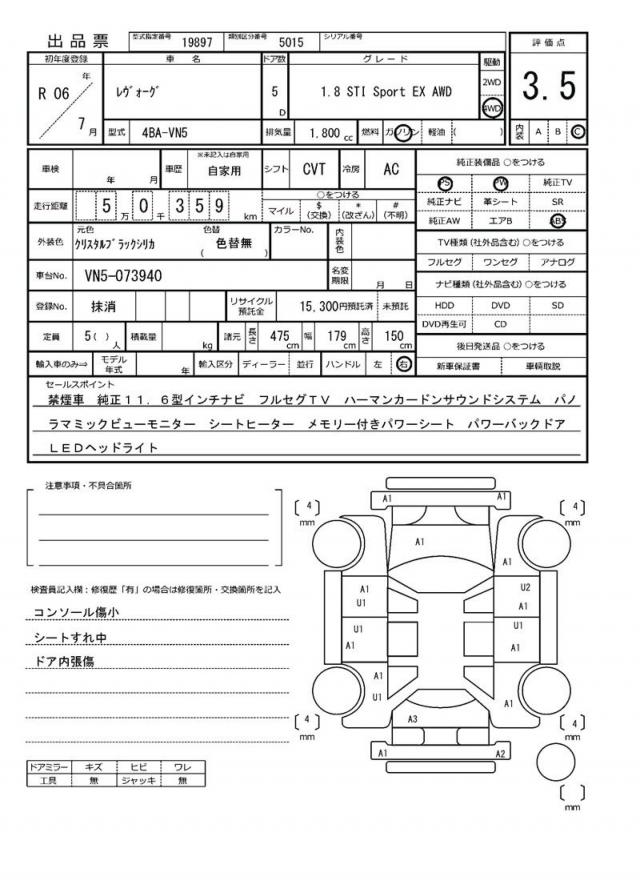 出品票 型式指定番号 19897 類別区分番号 5015 シリアル番号
評価点
3.5
内装 A B C
初年度登録 車名 ドア数 グレード 駆動
R 06 年 7 月
レヴォーグ 5 D 1.8 STI Sport EX AWD 2WD 4WD
型式 4BA-VN5 排気量 1.800 cc 燃料 ガソリン 軽油 ( )
車検 年 月 車歴 ※未記入は自家用 自家用 シフト CVT 冷房 AC
走行距離 5万0千359 km ○をつける
マイル $(交換) *(改ざん) #(不明)
外装色 元色 クリスタルブラックシリカ 色替 ( 色替無 ) カラーNo. 内装色
車台No. VN5-073940 名変期限 月 日
登録No. 抹消 リサイクル預託金 15,300円預託済 未預託
定員 5( ) 人 積載量 kg 諸元 長さ 475 cm 幅 179 cm 高さ 150 cm
輸入車のみ⇒ モデル年式 年 輸入区分 ディーラー 並行 ハンドル 左 右
純正装備品 ○をつける
PS PW 純正TV
純正ナビ 革シート SR
純正AW エアB ABS
TV種類(社外品含む) ○をつける
フルセグ ワンセグ アナログ
ナビ種類(社外品含む) ○をつける
HDD DVD SD
DVD再生可 CD
後日発送品 ○をつける
新車保証書 車輌取説
セールスポイント
禁煙車 純正11.6型インチナビ フルセグTV ハーマンカードンサウンドシステム パノ
ラマミックビューモニター シートヒーター メモリー付きパワーシート パワーバックドア
LEDヘッドライト
注意事項・不具合箇所
検査員記入欄:修復歴「有」の場合は修復箇所・交換箇所を記入
コンソール傷小
シートすれ中
ドア内張傷
ドアミラー キズ ヒビ ワレ
工具 無 ジャッキ 無
A1 A1
[ 4 ] mm [ 4 ] mm
A1 A1
A1 U2
U1 A1
U1 U1
A1 A1
A1
U1 A1
A3
[ 4 ] mm [ 4 ] mm
A1 A2
[ ] mm